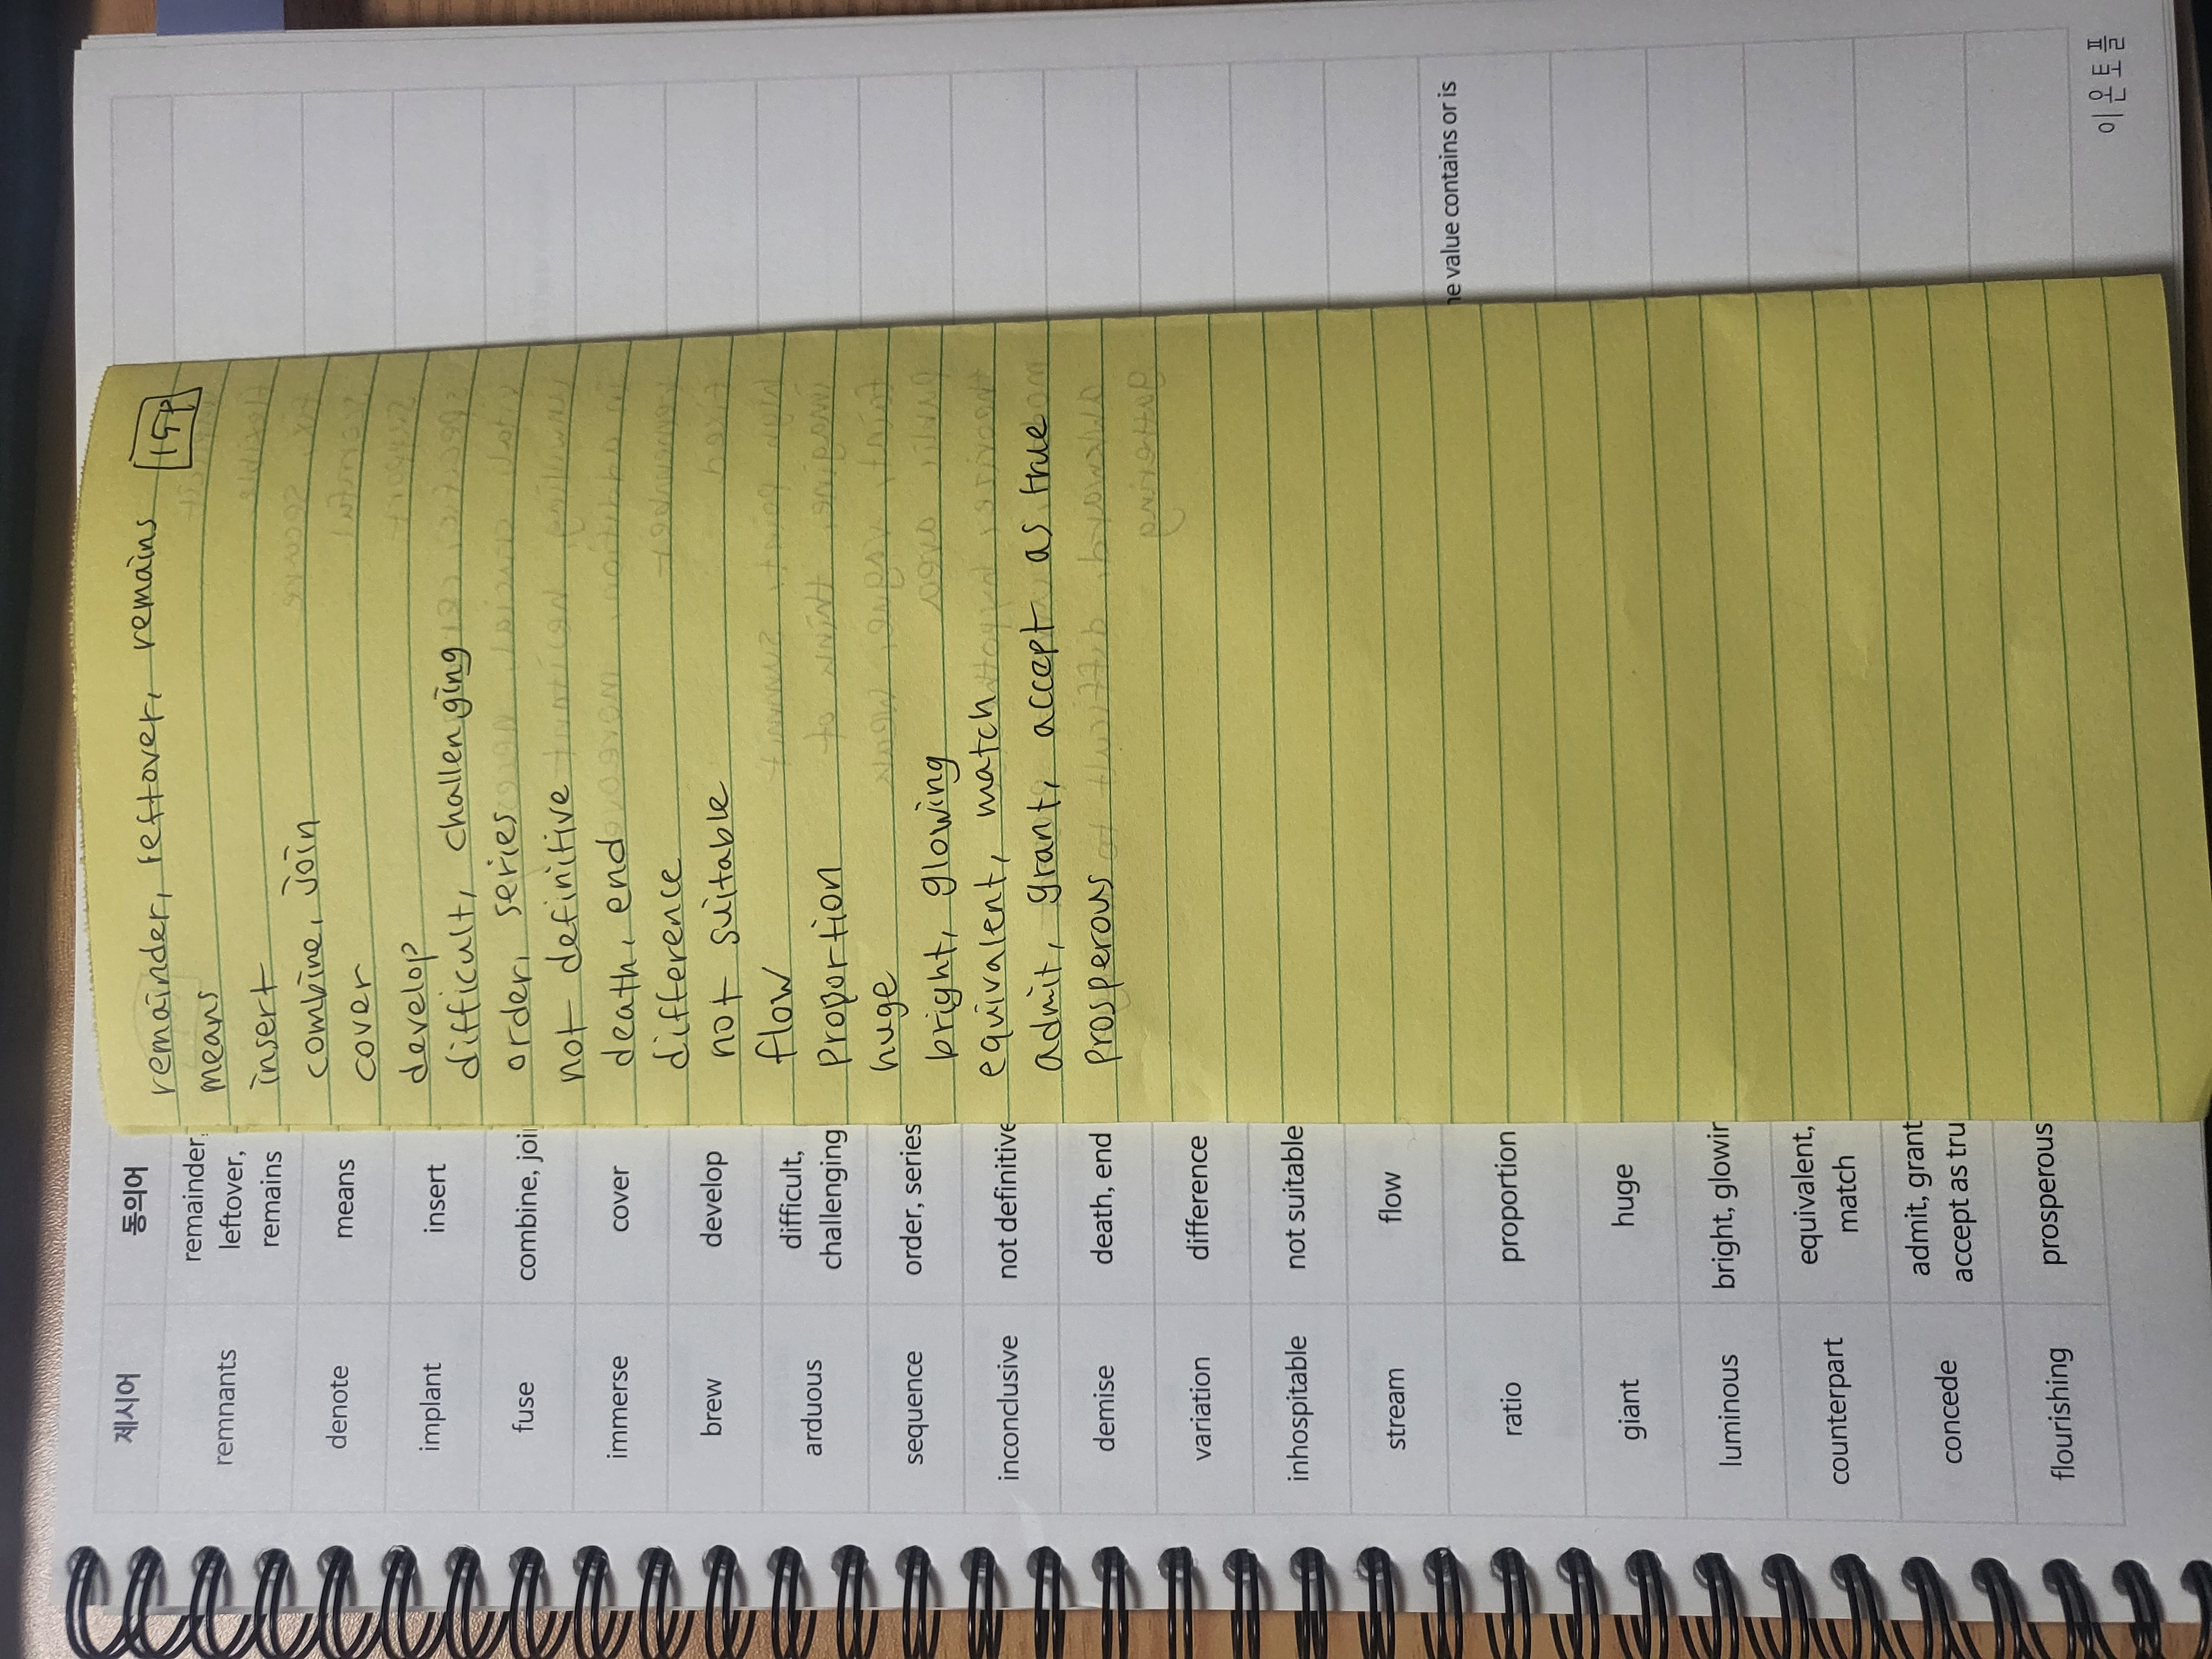 제시어 동의어
remnants remainder, leftover, remains
denote means
implant insert
fuse combine, joi
immerse cover
brew develop
arduous difficult, challenging
sequence order, series
inconclusive not definitive
demise death, end
variation difference
inhospitable not suitable
stream flow
ratio proportion
ne value contains or is
giant huge
luminous bright, glowin
counterpart equivalent, match
concede admit, grant accept as tru
flourishing prosperous
이윤토플
remainder, leftover, remains 15P
means
insert
combine, join
cover
develop
difficult, challenging
order, series
not definitive
death, end
difference
not suitable
flow
proportion
huge
bright, glowing
equivalent, match
admit, grant, accept as true
prosperous